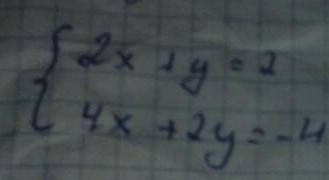 2x + y = 2
4x + 2y = -4